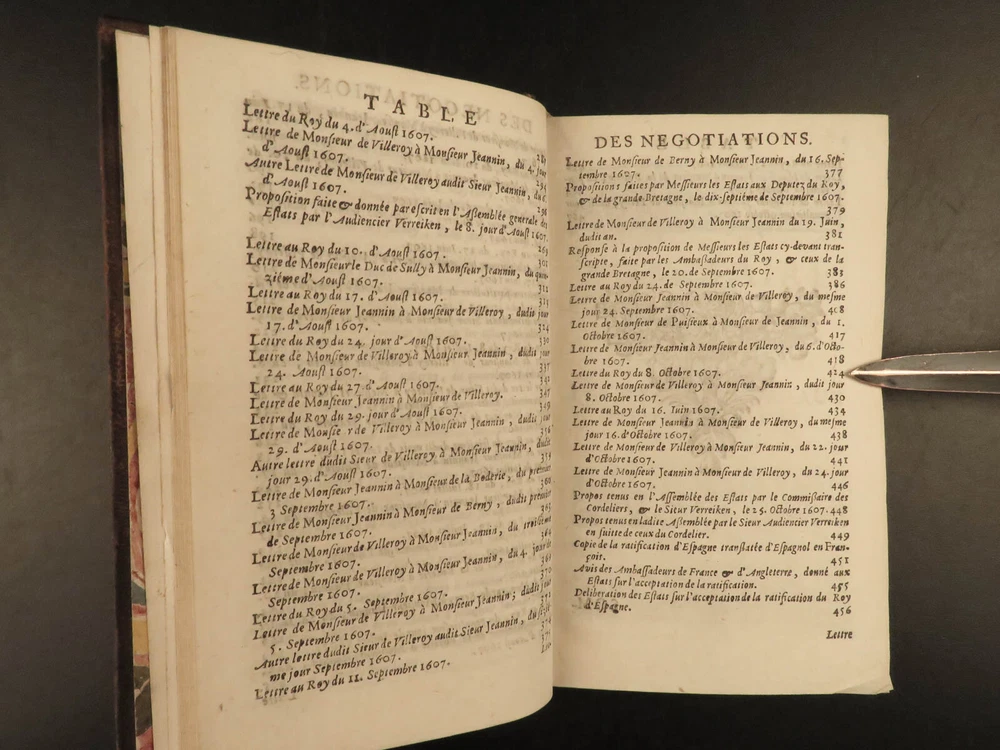 TABLE
Lettre du Roy du 4. d'Aoust 1607.
Lettre de Monsieur de Villeroy à Monsieur Jeannin, du 4. jour
d'Aoust 1607.
Autre Lettre de Monsieur de Villeroy audit Sieur Jeannin, du
d'Aoust 1607. 296
Proposition faite & donnée par escrit en l'Assemblée generale des
Estats par l'Audiencier Verreiken, le 8. jour d'Aoust 1607.
Lettre au Roy du 10. d'Aoust 1607. 301
Lettre de Monsieur le Duc de Sully à Monsieur Jeannin, du quin-
ziéme d'Aoust 1607. 312
Lettre au Roy du 17. d'Aoust 1607. 313
Lettre de Monsieur Jeannin à Monsieur de Villeroy, dudit jour
17. d'Aoust 1607. 324
Lettre du Roy du 24. jour d'Aoust 1607. 330
Lettre de Monsieur de Villeroy à Monsieur Jeannin, dudit jour
24. Aoust 1607. 337
Lettre au Roy du 27. d'Aoust 1607. 342
Lettre de Monsieur Jeannin à Monsieur de Villeroy. 347
Lettre du Roy du 29. jour d'Aoust 1607. 349
Lettre de Monsieur de Villeroy à Monsieur Jeannin, dudit jour
29. d'Aoust 1607.
Autre lettre dudit Sieur de Villeroy à Monsieur Jeannin, dudit
jour 29. d'Aoust 1607.
Lettre de Monsieur Jeannin à Monsieur de la Boderie, du premier
3 Septembre 1607. 360
Lettre de Monsieur Jeannin à Monsieur de Berny, dudit premier
de Septembre 1607. 363
Lettre de Monsieur de Villeroy à Monsieur Jeannin, du troisiéme
Septembre 1607. 364
Lettre de Monsieur de Villeroy à Monsieur Jeannin, du 4. jour de
Septembre 1607.
Lettre du Roy du 5. Septembre 1607. 370
Lettre de Monsieur de Villeroy à Monsieur Jeannin; dudit jour
5. Septembre 1607.
Autre lettre dudit Sieur de Villeroy audit Sieur Jeannin, du
me jour Septembre 1607.
Lettre au Roy du 11. Septembre 1607.
DES NEGOTIATIONS.
Lettre de Monsieur de Berny à Monsieur Jeannin, du 16. Sep-
tembre 1607. 377
Propositions faites par Messieurs les Estats aux Deputez du Roy,
& de la grande Bretagne, le dix-septiéme de Septembre 1607.
379
Lettre de Monsieur de Villeroy à Monsieur Jeannin du 19. Juin,
dudit an. 381
Response à la proposition de Messieurs les Estats cy-devant tran-
scripte, faite par les Ambassadeurs du Roy, & ceux de la
grande Bretagne, le 20. de Septembre 1607. 383
Lettre au Roy du 24. de Septembre 1607. 386
Lettre de Monsieur Jeannin à Monsieur de Villeroy, du mesme
jour 24. Septembre 1607. 408
Lettre de Monsieur de Puisieux à Monsieur de Jeannin, du 1.
Octobre 1607. 417
Lettre de Monsieur Jeannin à Monsieur de Villeroy, du 6. d'Octo-
bre 1607. 418
Lettre du Roy du 8. Octobre 1607. 424
Lettre de Monsieur de Villeroy à Monsieur Jeannin, dudit jour
8. Octobre 1607. 430
Lettre au Roy du 16. Juin 1607. 434
Lettre de Monsieur Jeannin à Monsieur de Villeroy, du mesme
jour 16. d'Octobre 1607. 438
Lettre de Monsieur de Villeroy à Monsieur Jeannin, du 22. jour
d'Octobre 1607. 441
Lettre de Monsieur Jeannin à Monsieur de Villeroy, du 24. jour
d'Octobre 1607. 446
Propos tenus en l'Assemblée des Estats par le Commissaire des
Cordeliers, & le Sieur Verreiken, le 25. Octobre 1607. 448
Propos tenus en ladite Assemblée par le Sieur Audiencier Verreiken
en suite de ceux du Cordelier. 449
Copie de la ratification d'Espagne translatée d'Espagnol en Fran-
çois. 451
Avis des Ambassadeurs de France & d'Angleterre, donné aux
Estats sur l'acceptation de la ratification. 455
Deliberation des Estats sur l'acceptation de la ratification du Roy
d'Espagne. 456
Lettre